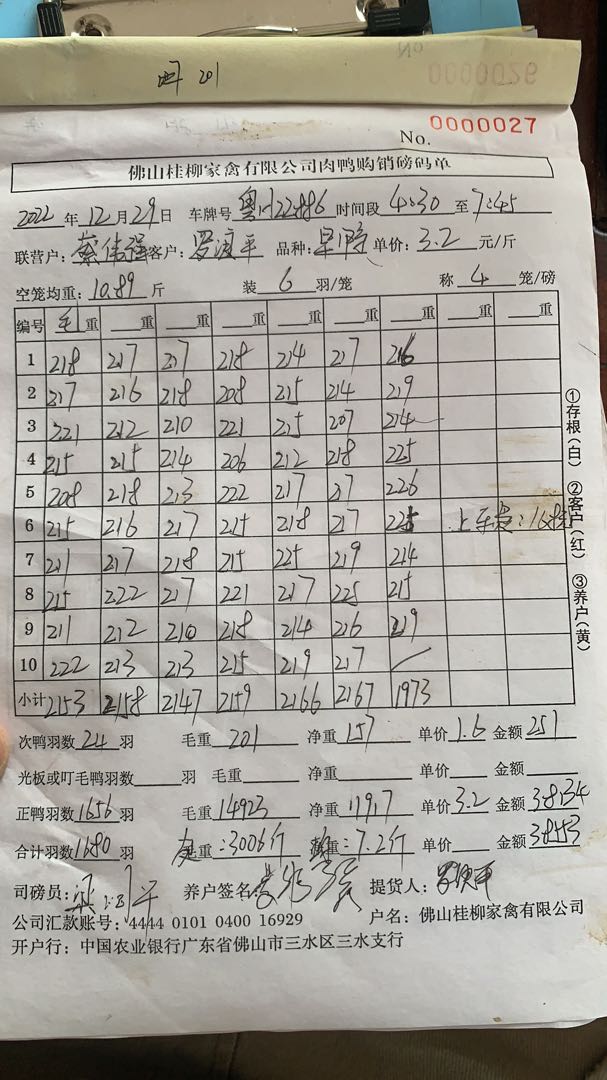 201
0000026
No. 0000027
佛山桂柳家禽有限公司肉鸭购销磅码单
2022年12月29日 车牌号 粤 22886 时间段 4:30 至 7:45
联营户: 蔡伟强 客户: 罗 平 品种: 单价: 3.2 元/斤
空笼均重: 10.89 斤 装 6 羽/笼 称 4 笼/磅
编号 毛重 重 重 重 重 重 重 重 重
1 218 217 217 218 214 217 216
2 217 216 218 208 215 214 219
3 221 212 210 221 215 207 214
4 215 215 214 206 212 218 225
5 208 218 213 222 217 217 226
6 215 216 217 215 218 217 225 上车
7 211 217 218 215 225 219 214
8 215 222 217 221 217 225 215
9 211 212 210 218 214 216 219
10 222 213 213 215 219 217
小计 2153 2158 2147 2159 2166 2167 1973
次鸭羽数 24 羽 毛重 201 净重 157 单价 1.6 金额 251
光板或叮毛鸭羽数 羽 毛重 净重 单价 金额
正鸭羽数 1656 羽 毛重 14923 净重 11917 单价 3.2 金额 38134
合计羽数 1680 羽 重: 3006斤 重: 7.2斤 单价 金额
司磅员: 养户签名: 提货人:
公司汇款账号: 4444 0101 0400 16929 户名: 佛山桂柳家禽有限公司
开户行: 中国农业银行广东省佛山市三水区三水支行
①存根(白) ②客户(红) ③养户(黄)